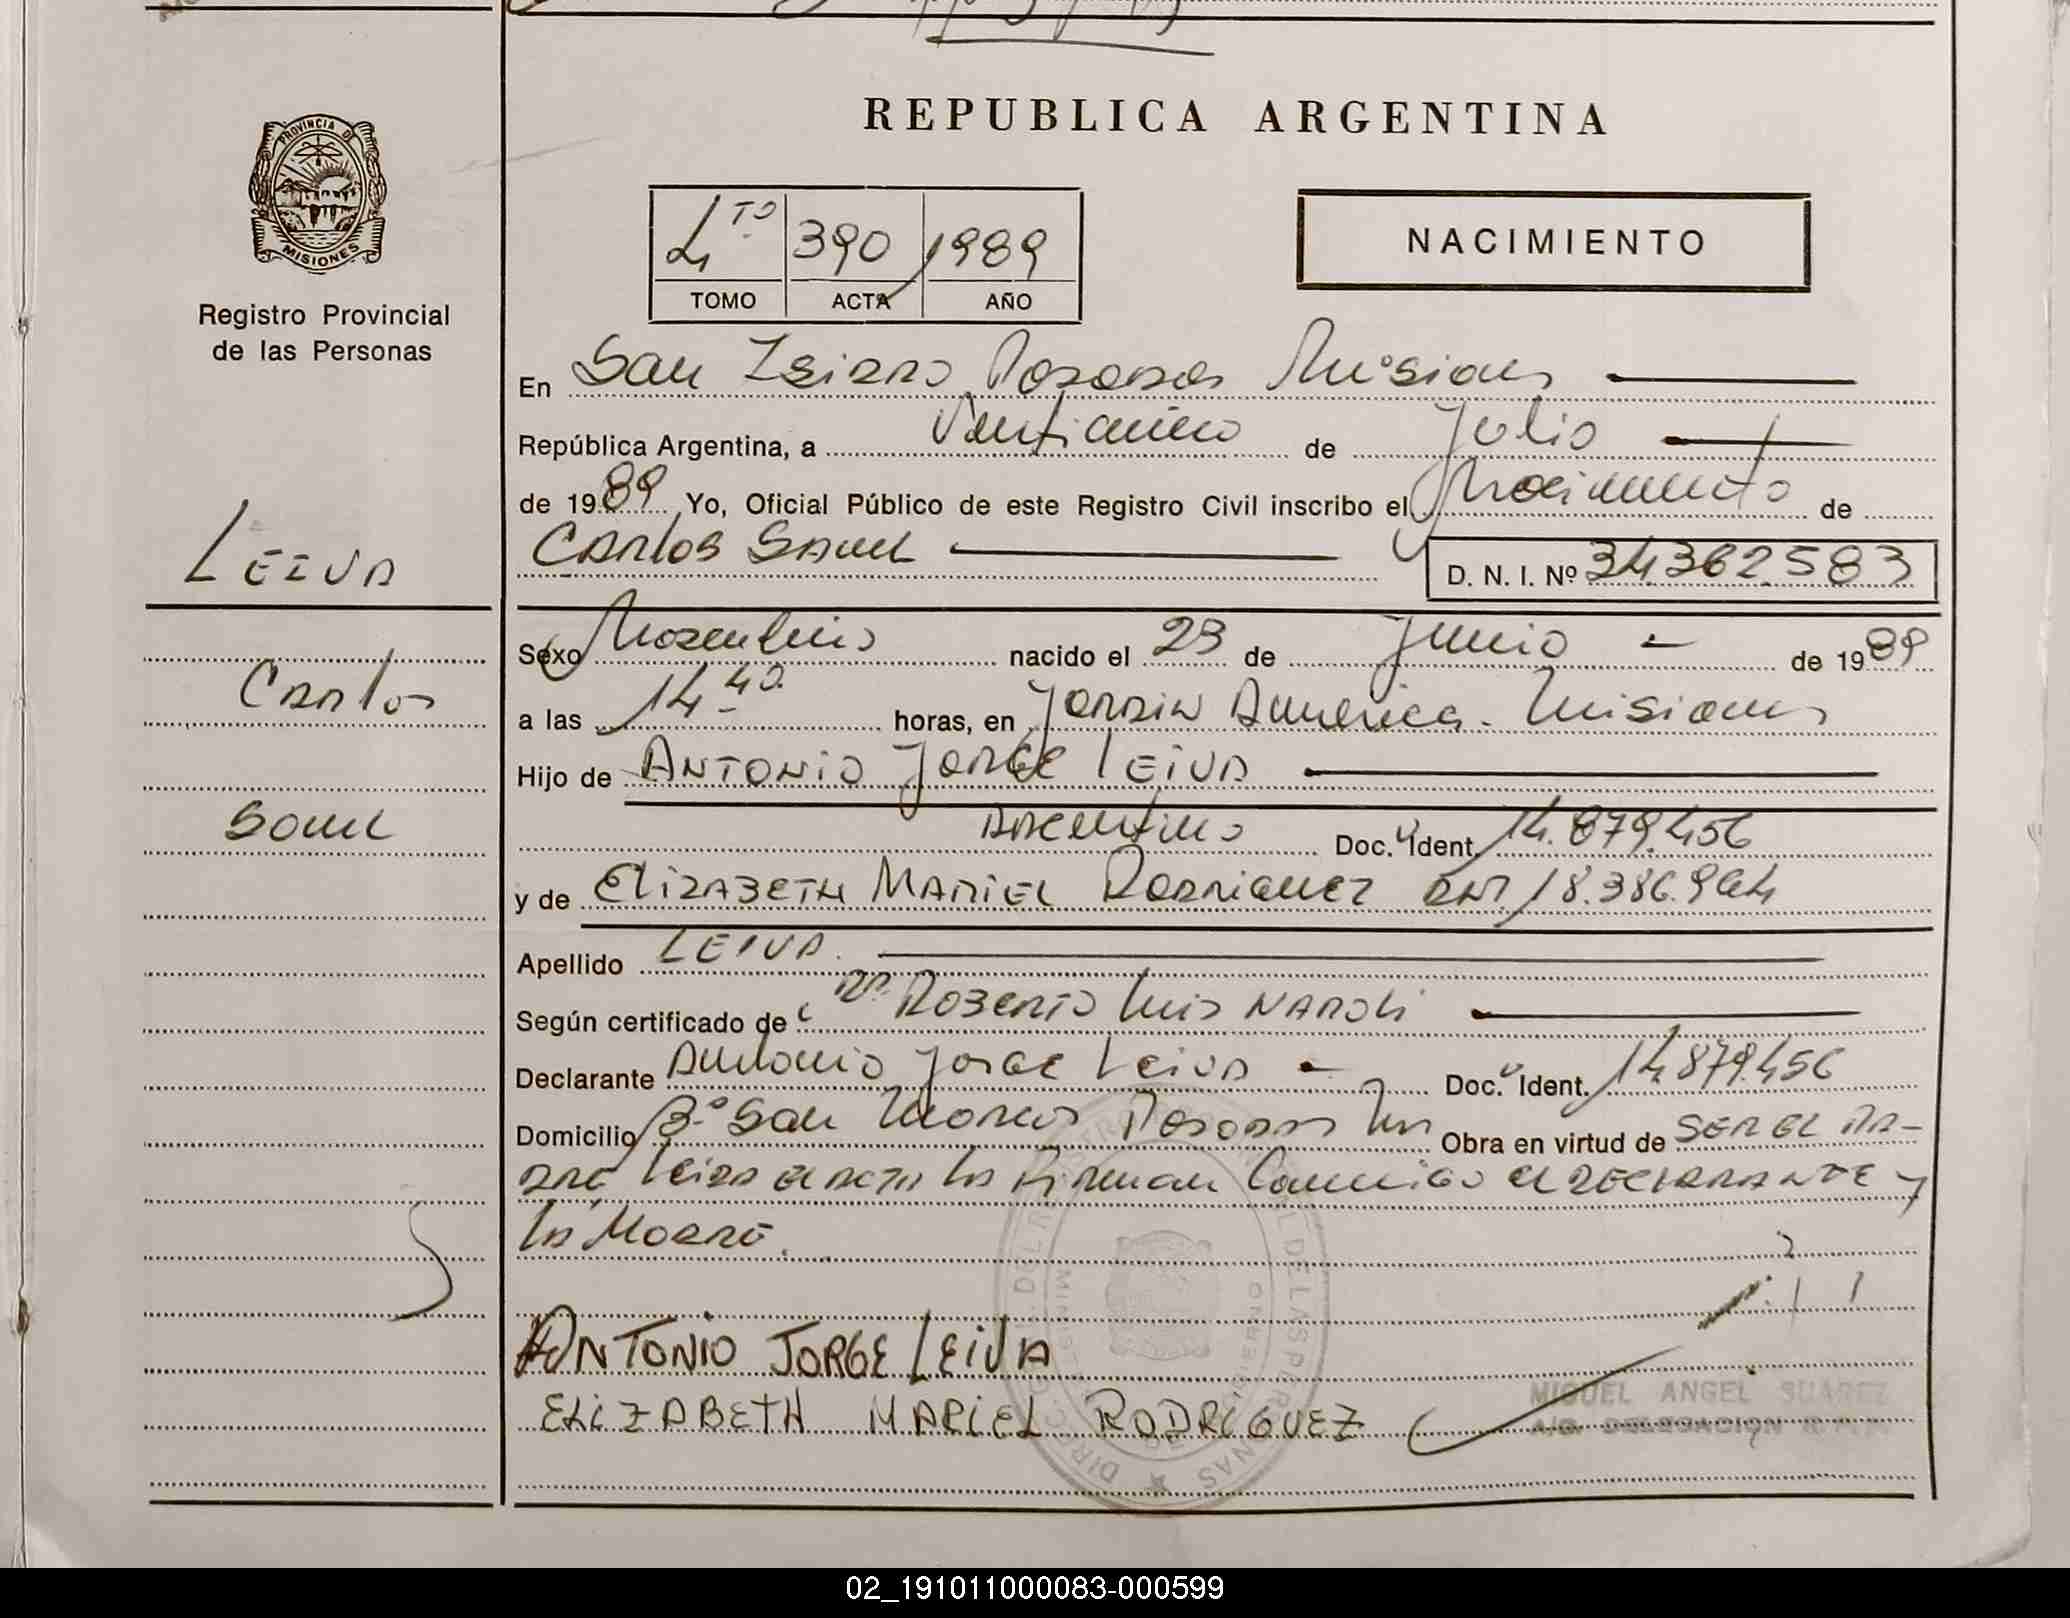 REPUBLICA ARGENTINA
PROVINCIA DE
MISIONES
Registro Provincial
de las Personas
4TO 390 1989
TOMO ACTA AÑO
NACIMIENTO
En San Isidro Posadas Misiones
República Argentina, a Venticuico de Julio
de 1989 Yo, Oficial Público de este Registro Civil inscribo el Nacimiento de
Carlos Samuel
D. N. I. Nº 34.362.583
LEIVA
Carlos
Samuel
Sexo Masculino nacido el 23 de Junio de 1989
a las 14 40 horas, en Jardin America - Misiones
Hijo de ANTONIO Jorge LEIVA
Argentino Doc. Ident. 14.879.456
y de ELIZABETH MARIEL Rodriguez DNI 18.386.964
Apellido LEIVA.
Según certificado de Dr. Roberto Luis NAPOLI
Declarante Antonio Jorge Leiva Doc. Ident. 14.879.456
Domicilio Bº San Marcos Posadas Mns Obra en virtud de SER EL PA-
DRE Leida el acta la Firman Conmigo el DECLARANTE y
la Madre.
ANTONIO JORGE LEIVA
ELIZABETH MARIEL RODRIGUEZ
MIGUEL ANGEL SUAREZ
A/C. DELEGACION
02_191011000083-000599